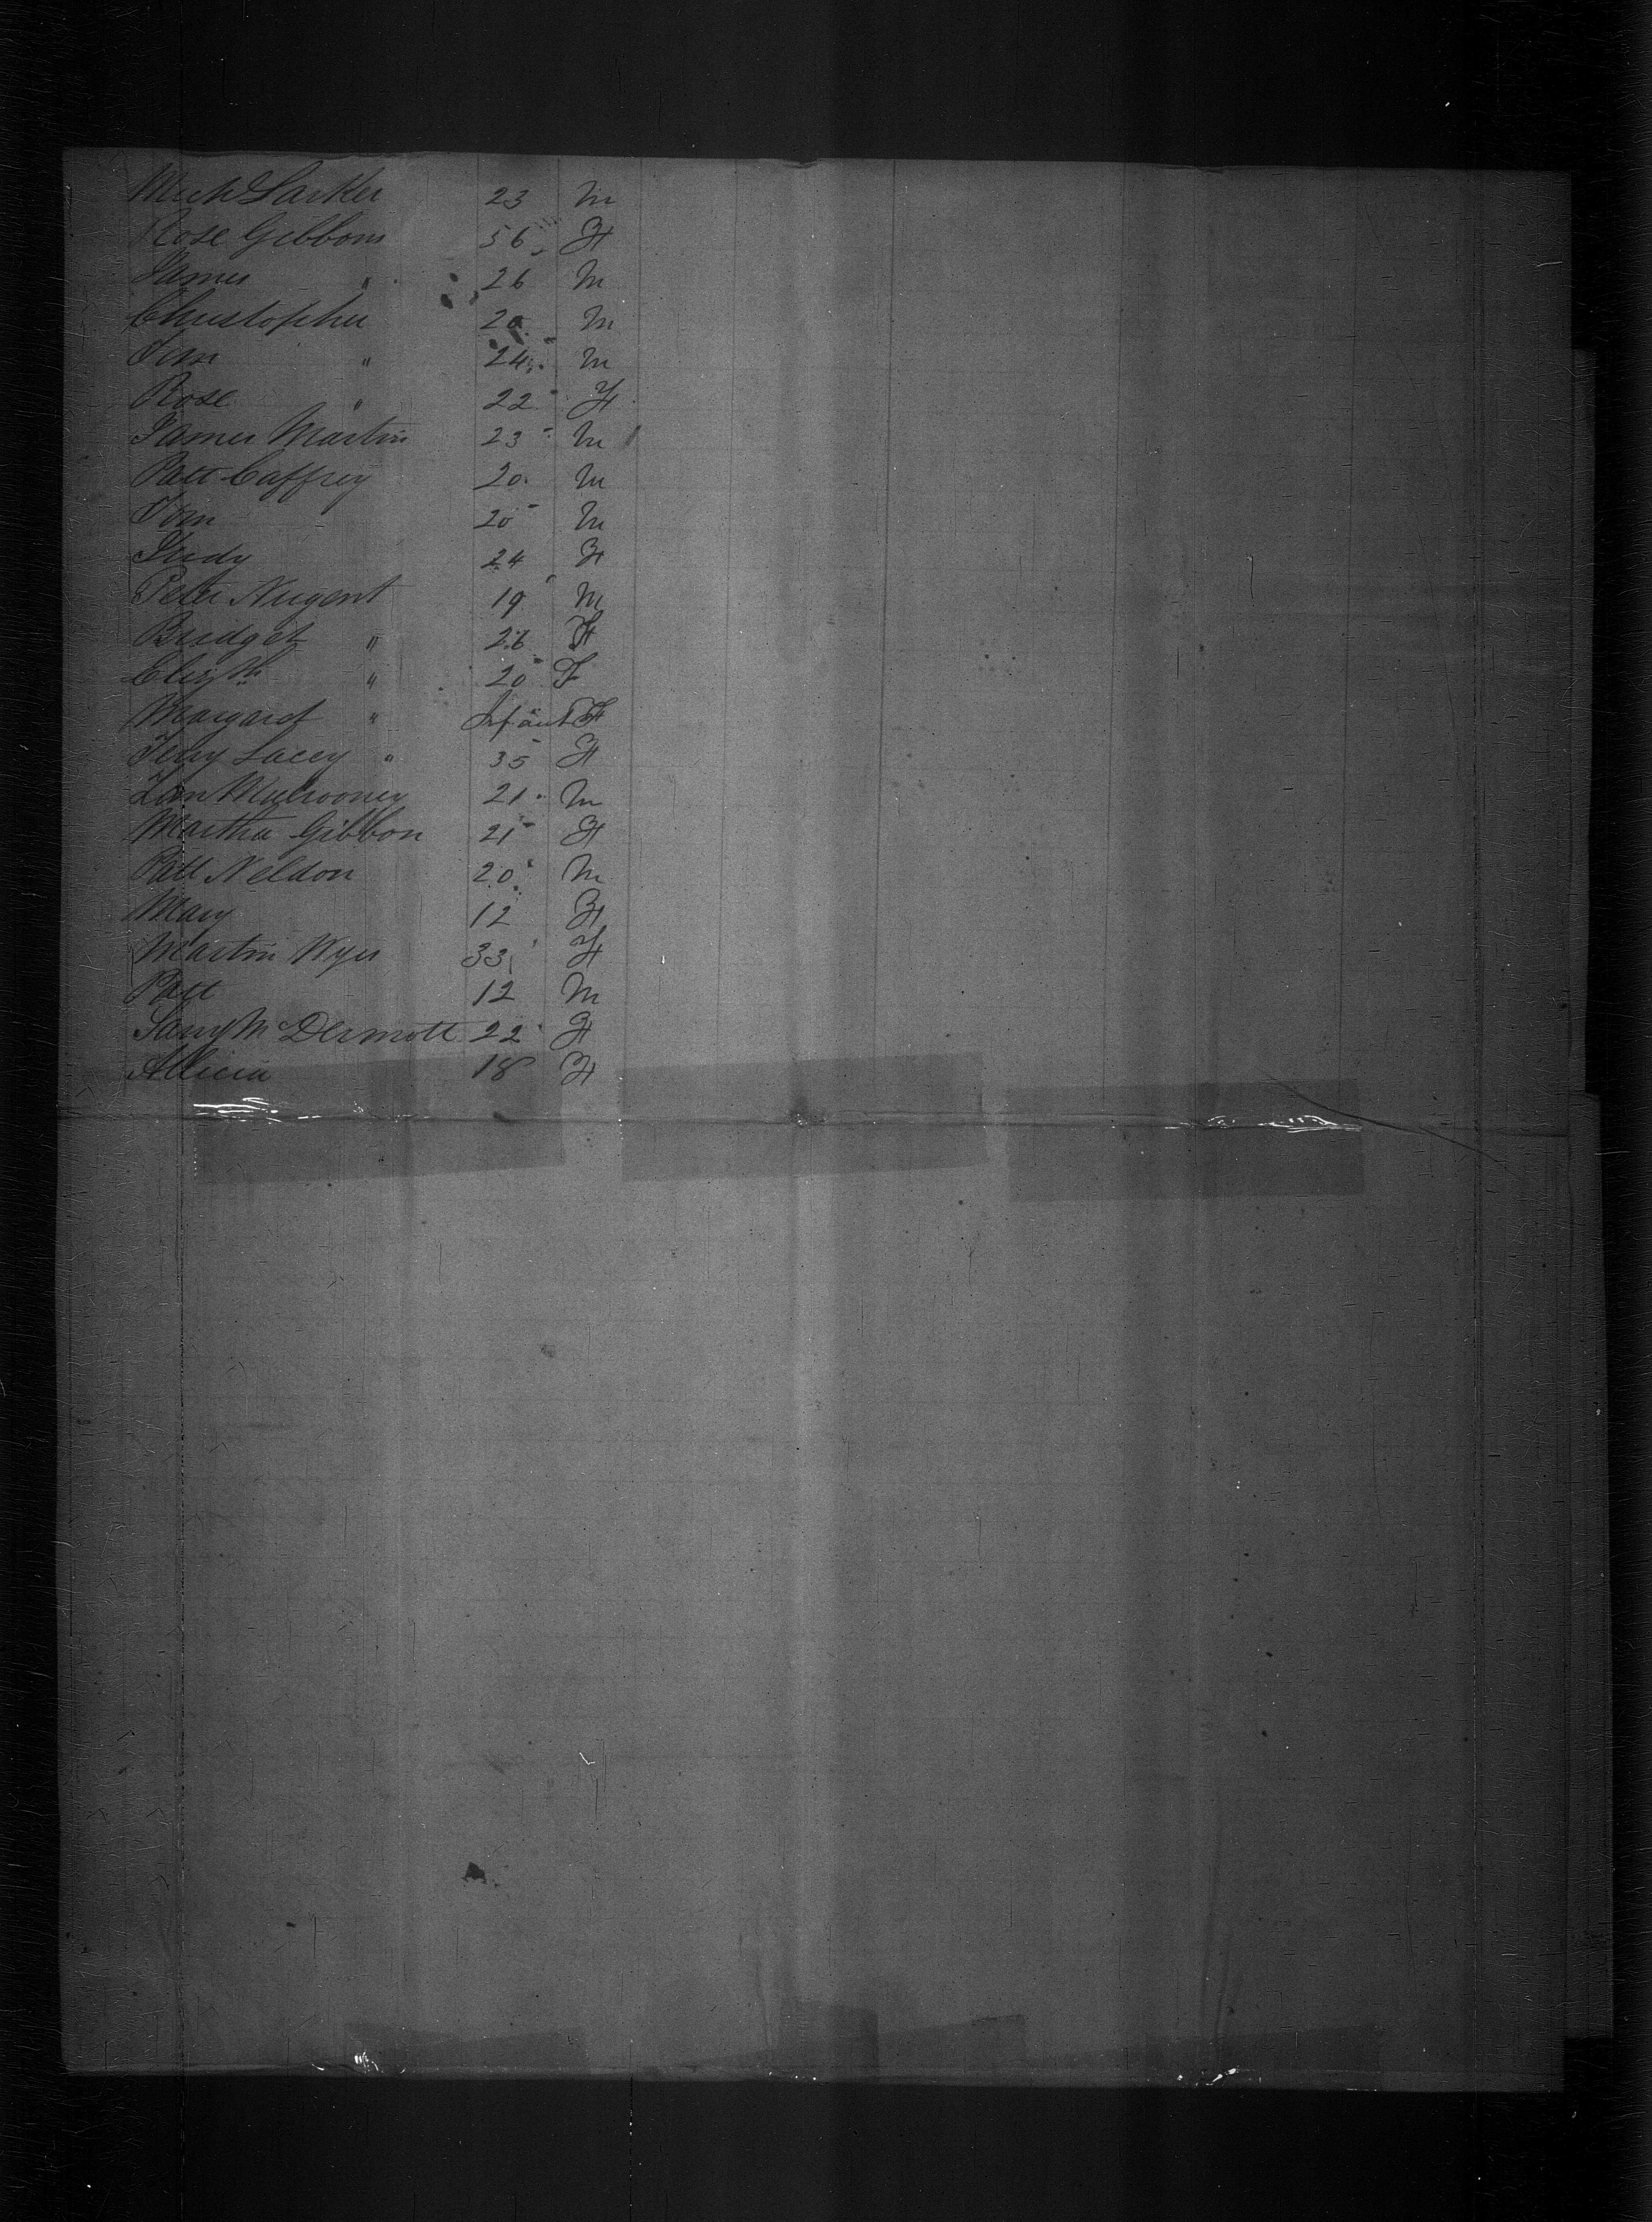 Mich Larker 23 M
Rose Gibbons 56 F
James " 26 M
Christopher 20 M
Tom " 24 M
Rose " 22 F
James Martin 23 M
Patt Caffrey 20 M
Tom 20 M
Judy 24 F
Peter Nugent 19 M
Bridget " 26 F
Elizth " 20 F
Margaret " Infant F
Terry Lacey " 35 F
Mulrooney 21 M
Martha Gibbon 21 F
Patt Neldon 20 M
Mary 12 F
Martin Wyer 33 F
Patt 12 M
McDermott 22 F
Allicia 18 F